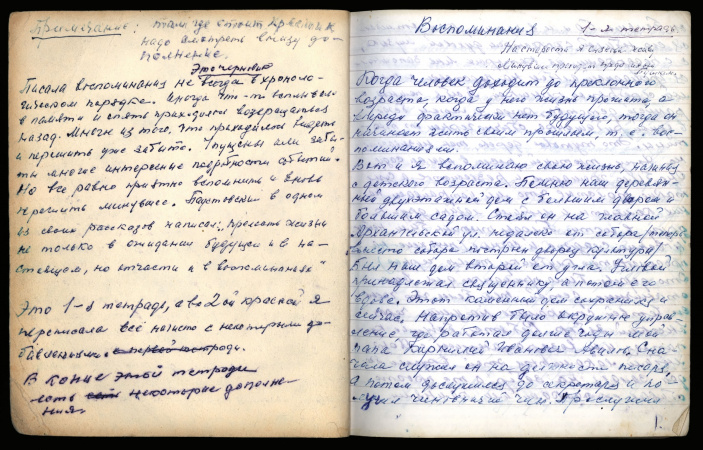 Примечание: там где стоит крестик
надо смотреть внизу до-
полнение.
Это черновик
Писала воспоминания не всегда в хроноло-
гическом порядке. Иногда что-то всплывет
в памяти и опять приходится возвращаться
назад. Многое из того, что приходилось видеть
и пережить уже забыто. Упущены или забы-
ты многие интересные подробности событий.
Но все равно приятно вспомнить и вновь
пережить минувшее. Паустовский в одном
из своих рассказов написал: "Прелесть жизни
не только в ожидании будущего и в на-
стоящем, но отчасти и в воспоминаниях"
Это 1-я тетрадь, а во 2ой красной я
переписала всё начисто с некоторыми до-
бавлениями.
В конце этой тетради
есть некоторые дополне-
ния.
Воспоминания 1-я тетрадь.
На старости я сызнова живу
Минувшее проходит предо мною
Когда человек доходит до преклонного
возраста, когда у него жизнь прошита, а
впереди фактически нет будущего, тогда он
начинает жить своим прошлым, т. е. вос-
поминаниями.
Вот и я вспоминаю свою жизнь, начиная
с детского возраста. Помню наш деревян-
ный двухэтажный дом с большим двором и
большим садом. Стоял он на главной
Архангельской ул. недалеко от собора /теперь
вместо собора построен дворец культуры/
Был наш дом второй от угла. Угловой
принадлежал священнику, а потом его
вдове. Этот каменный дом сохранился и
сейчас. Напротив было акцизное управ-
ление, где работал долгие годы мой
папа Корнилий Иванович Сна-
чала служил он на должности писаря,
а потом дослужился до секретаря и по-
лучил чин. Прослужил
1.